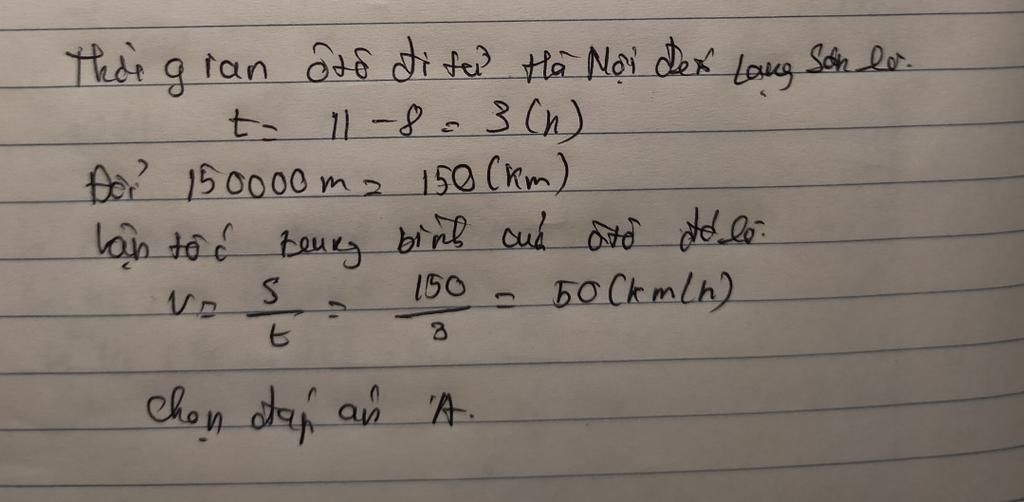 Thời gian ôtô đi từ Hà Nội đến Lạng Sơn là.
t = 11 - 8 = 3 (h)
Đổi 150000 m = 150 (km)
Vận tốc trung bình của ôtô đó là:
v = s/t = 150/3 = 50 (km/h)
Chọn đáp án A.